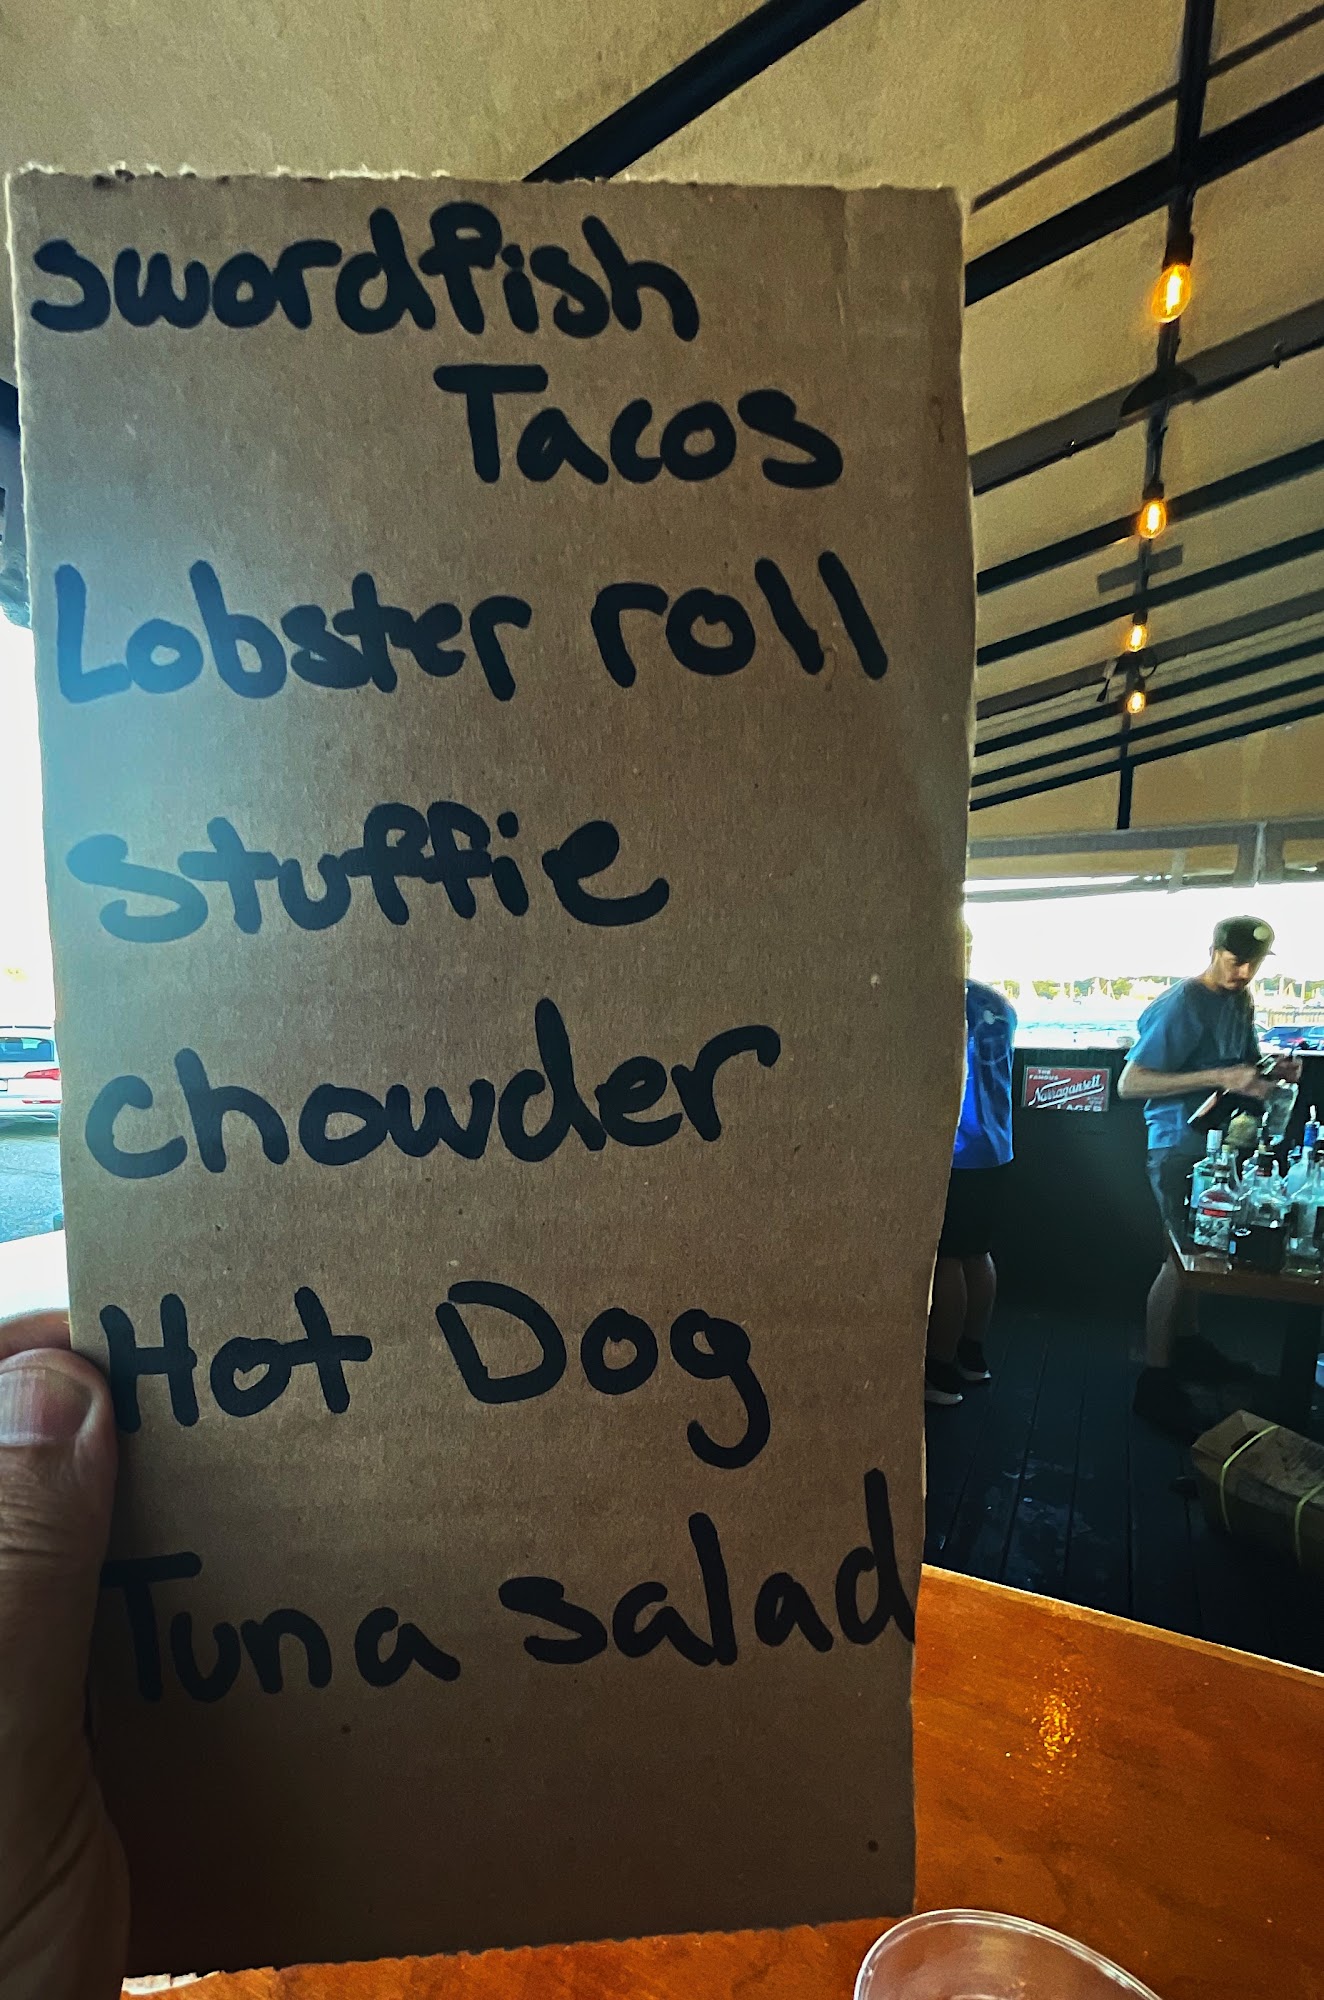 swordfish
Tacos
Lobster roll
stuffie
chowder
Hot Dog
Tuna salad
THE
FAMOUS
Narragansett
LAGER